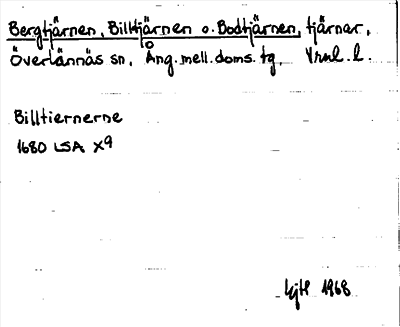 Bergtjärnen, Billtjärnen o. Bodtjärnen, tjärnar,
Överlännäs sn, Ång. mell. doms. tg, Vrnl. l.
Billtiernerne
1680 LSA X9
1968